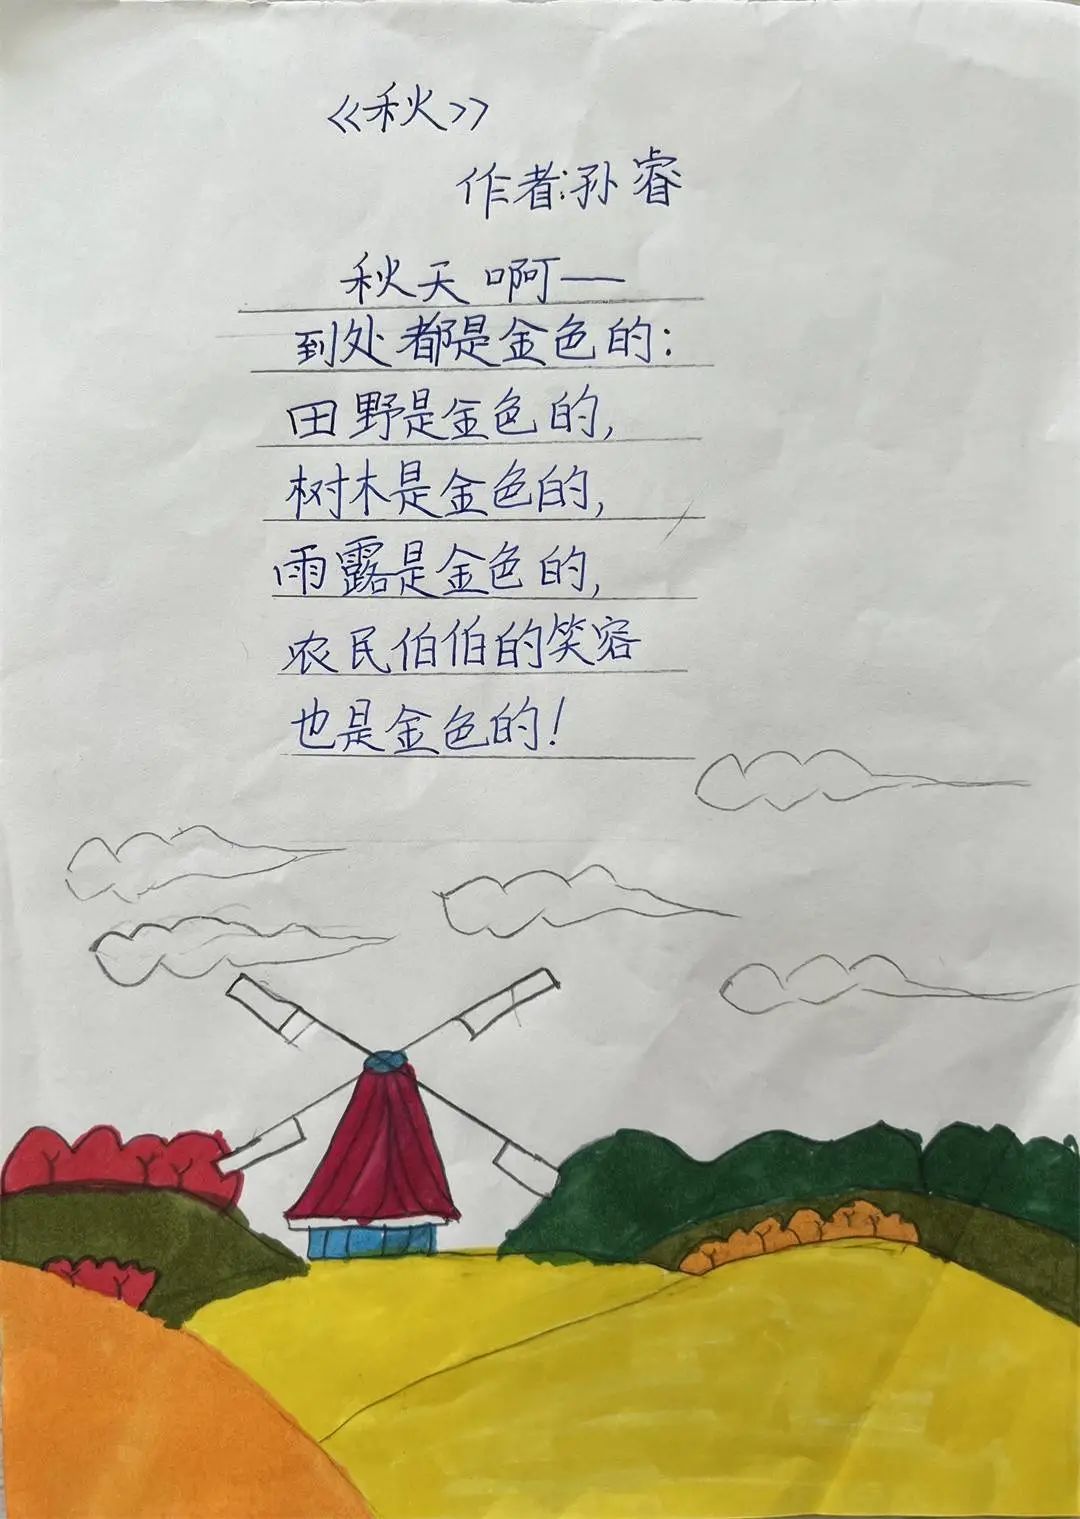 《秋》
作者:孙睿
秋天啊——
到处都是金色的:
田野是金色的,
树木是金色的,
雨露是金色的,
农民伯伯的笑容
也是金色的!